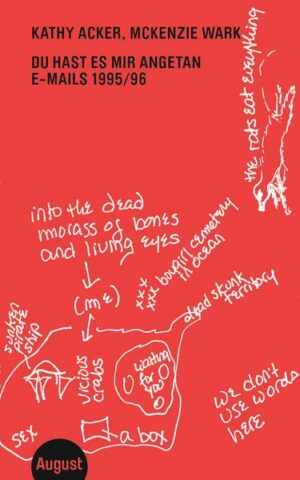 KATHY ACKER, MCKENZIE WARK
DU HAST ES MIR ANGETAN
E-MAILS 1995/96
the rats eat everything
into the dead
morass of bones
and living eyes
(me)
xxxx
xxx bowgirl cemetery
in ocean
dead skunk
territory
sunken
pirate
ship
vicious
crabs
waiting
for
you
we don't
use words
here
sex
a box
August